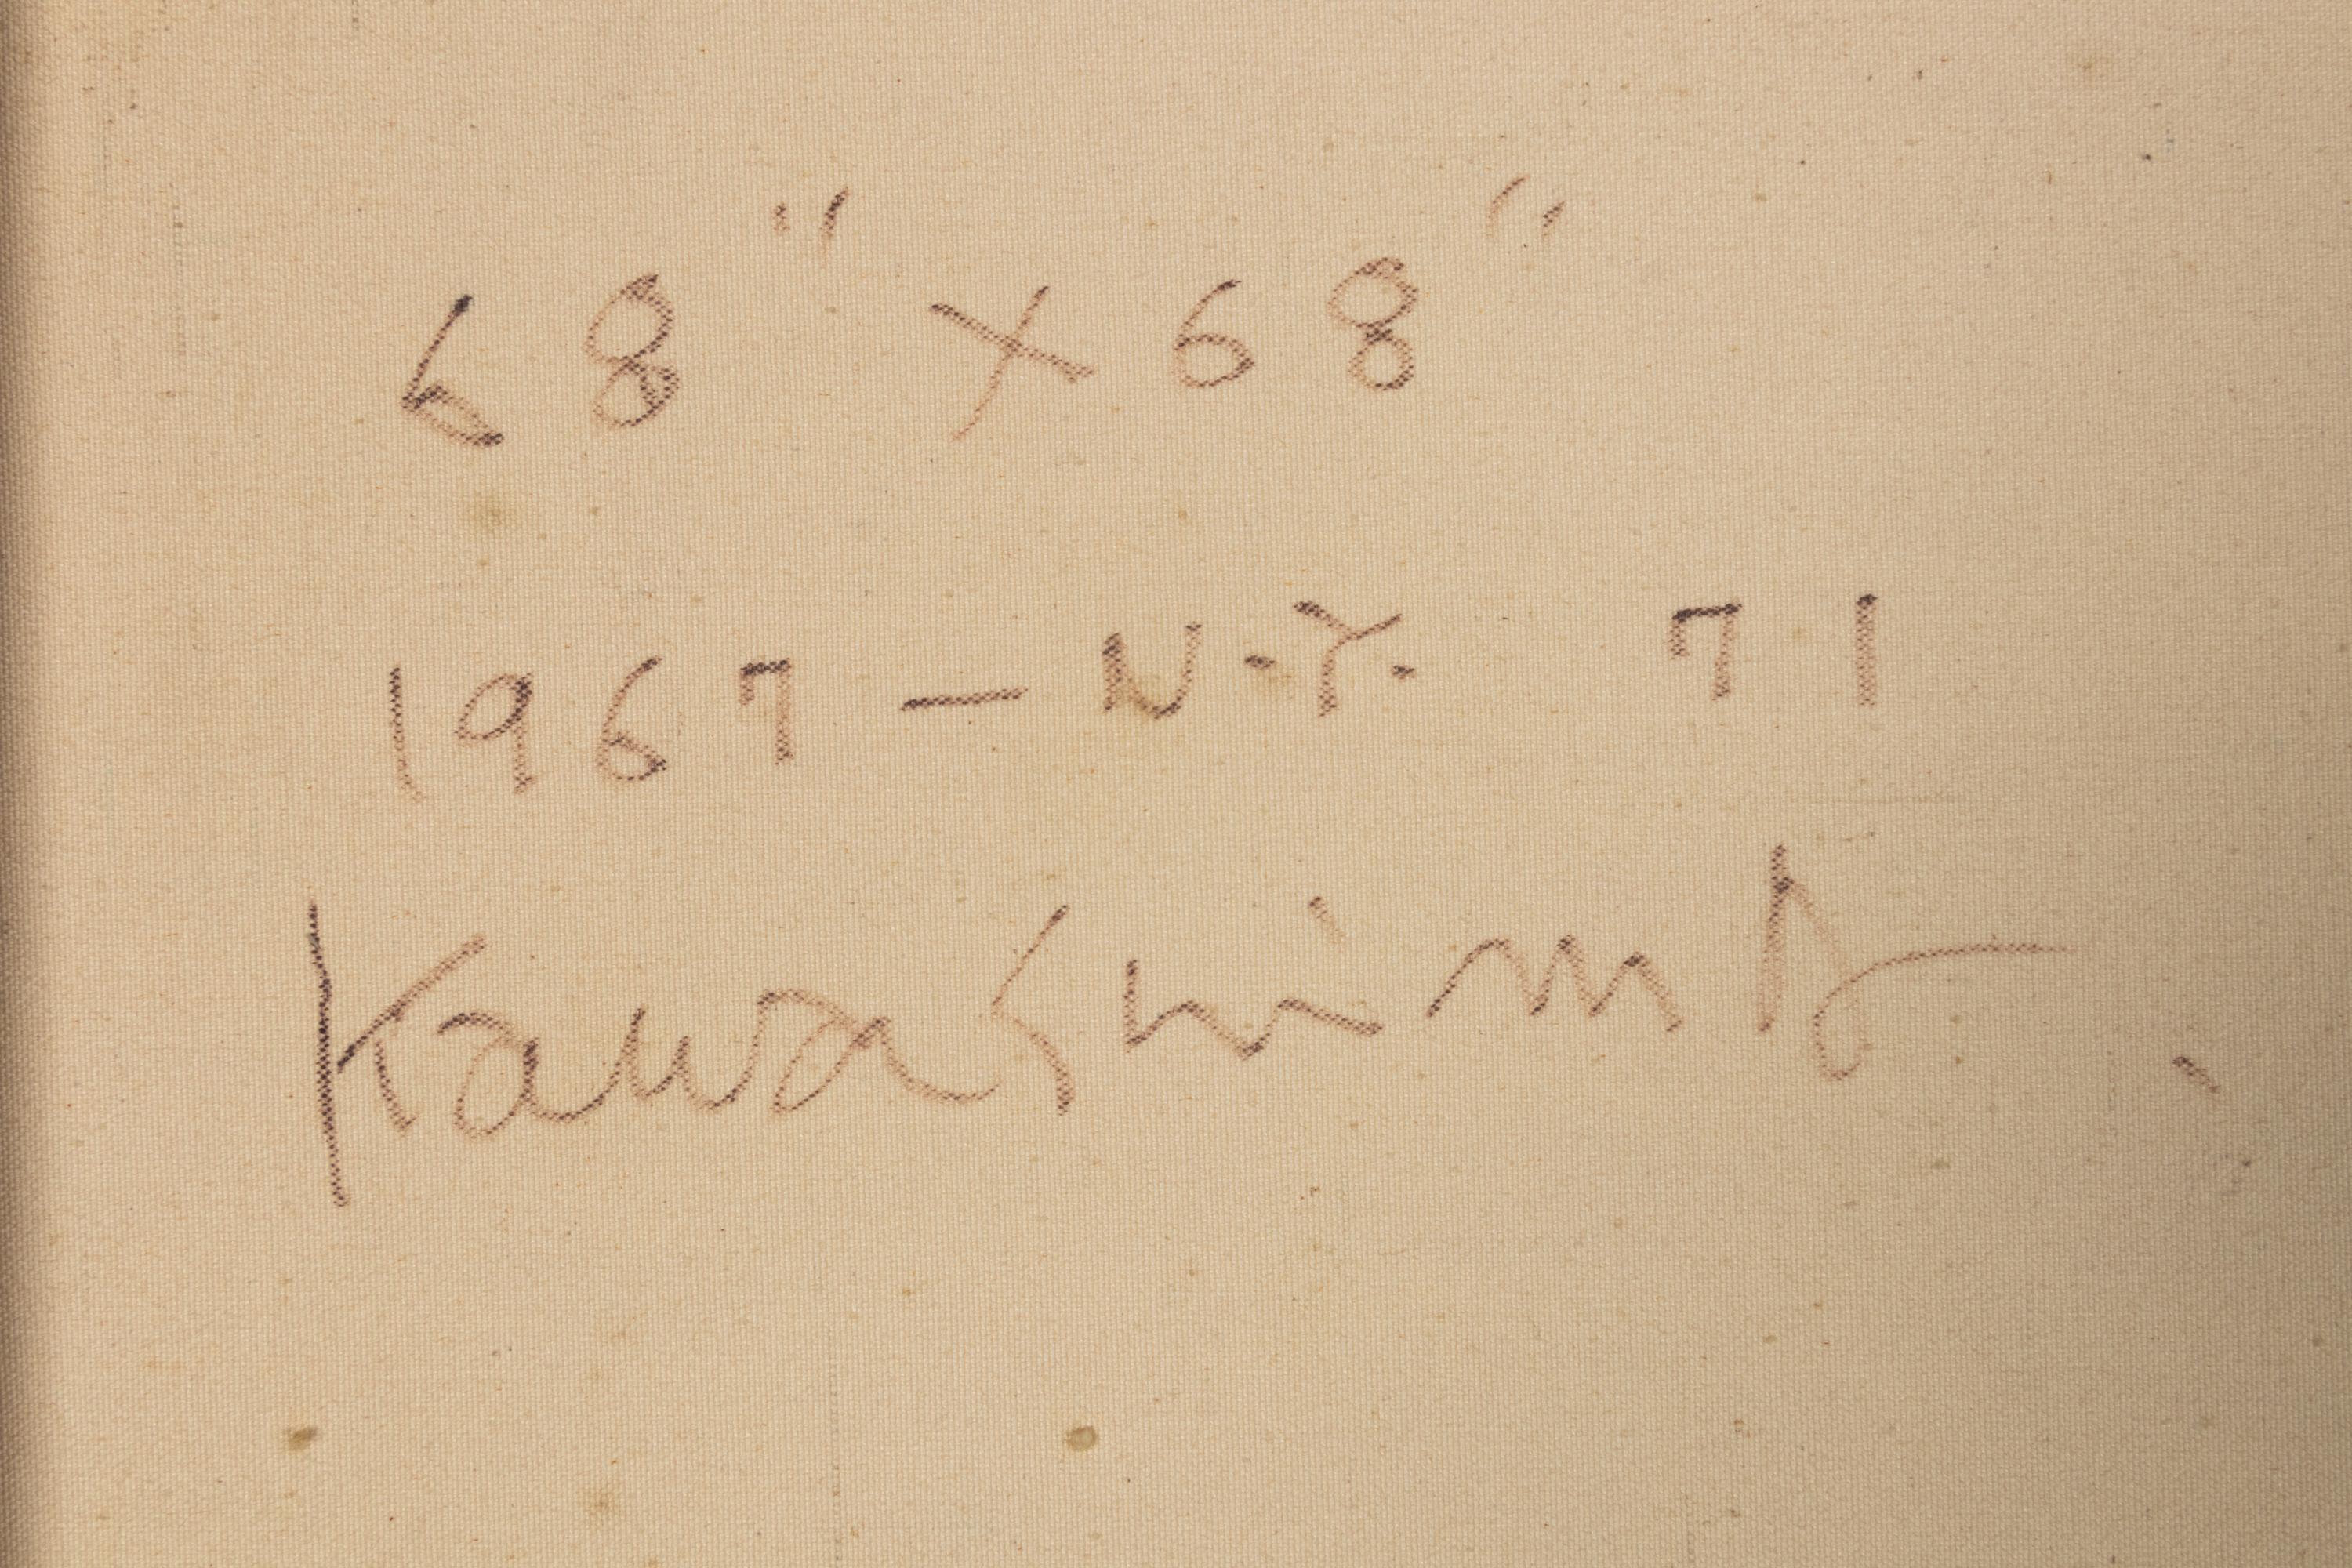 68" X 68"
1967 — N.Y. 71
Kawashima